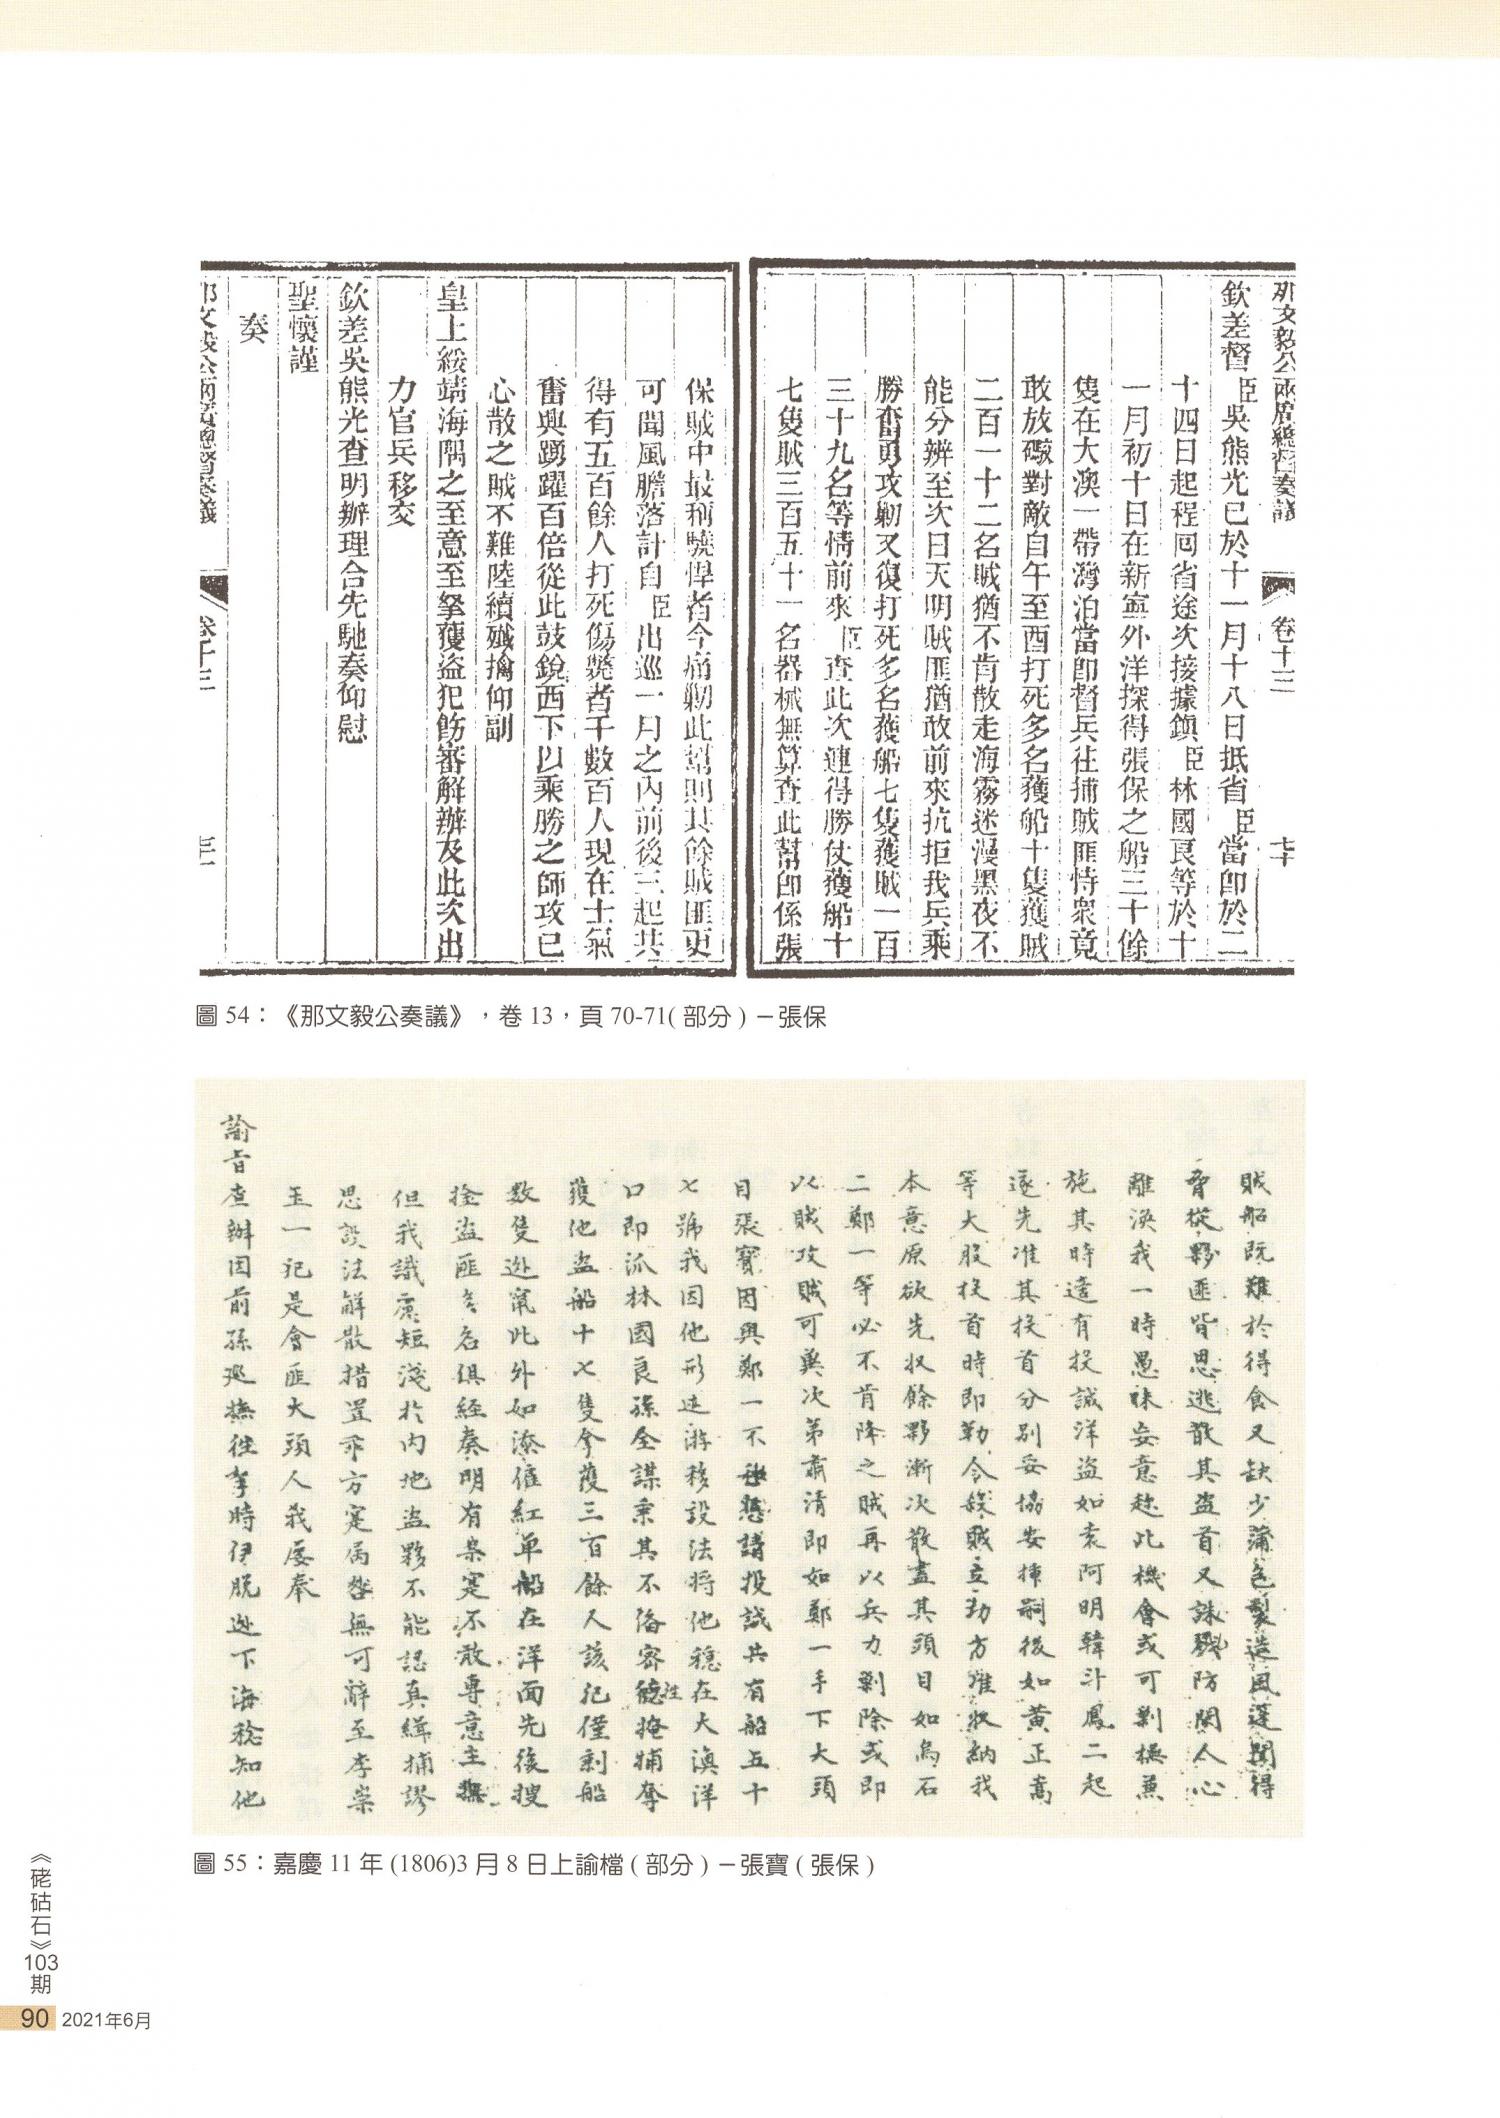 那文毅公兩廣總督奏議 卷十三 七十
欽差督臣吳熊光已於十一月十八日抵省臣當即於二
十四日起程回省途次接據鎮臣林國良等於十
一月初十日在新寧外洋探得張保之船三十餘
隻在大澳一帶灣泊當即督兵往捕賊匪恃衆竟
敢放礮對敵自午至酉打死多名獲船十隻獲賊
二百一十二名賊猶不肯散走海霧迷漫黑夜不
能分辨至次日天明賊匪猶敢前來抗拒我兵乘
勝奮勇攻勦又復打死多名獲船七隻獲賊一百
三十九名等情前來臣查此次連得勝仗獲船十
七隻賊三百五十一名器械無算查此幫即係張
保賊中最稱驍悍者今痛勦此幫則其餘賊匪更
可聞風膽落計自臣出巡一月之內前後三起共
得有五百餘人打死傷斃者千數百人現在士氣
奮興踴躍百倍從此鼓銳西下以乘勝之師攻已
心散之賊不難陸續殲擒仰副
皇上綏靖海隅之至意至拏獲盜犯飭審解辦及此次出
力官兵移交
欽差吳熊光查明辦理合先馳奏仰慰
聖懷謹
奏
那文毅公兩廣總督奏議 卷十三
圖 54：《那文毅公奏議》，卷 13，頁 70-71( 部分 ) －張保
賊船既難於得食又缺少蒲包製造風篷聞得
脅從夥匪皆思逃散其盜首又誅殘防閑人心
離渙我一時愚昧妄意趁此機會或可剿撫兼
施其時遂有投誠洋盜如袁阿明韓斗鳳二起
遂先准其投首分別妥協安插嗣後如黃正嵩
等大股投首時即勒令殺賊立功方准收納我
本意原欲先收餘夥漸次散盡其頭目如烏石
二鄭一等必不肯降之賊再以兵力剿除或即
以賊攻賊可冀次第肅清即如鄭一手下大頭
目張寶因與鄭一不和懇請投誠共有船五十
七號我因他形迹游移設法將他穩在大澳洋
口即派林國良孫全謀乘其不俻密往掩捕奪
獲他盜船十七隻拿獲三百餘人該犯僅剩船
數隻逃竄此外如添僱紅单船在洋面先後搜
捦盜匪多名俱經奏明有案寔不敢專意主撫
但我識慮短淺於內地盜夥不能認真緝捕謬
思設法解散措置乖方寔屬咎無可辭至李崇
玉一犯是會匪大頭人我屢奉
諭旨查辦因前孫廵撫往拿時伊脫逃下海稔知他
圖 55：嘉慶 11 年 (1806)3 月 8 日上諭檔 ( 部分 ) －張寶 ( 張保 )
《硓𥑮石》103期
90 2021年6月